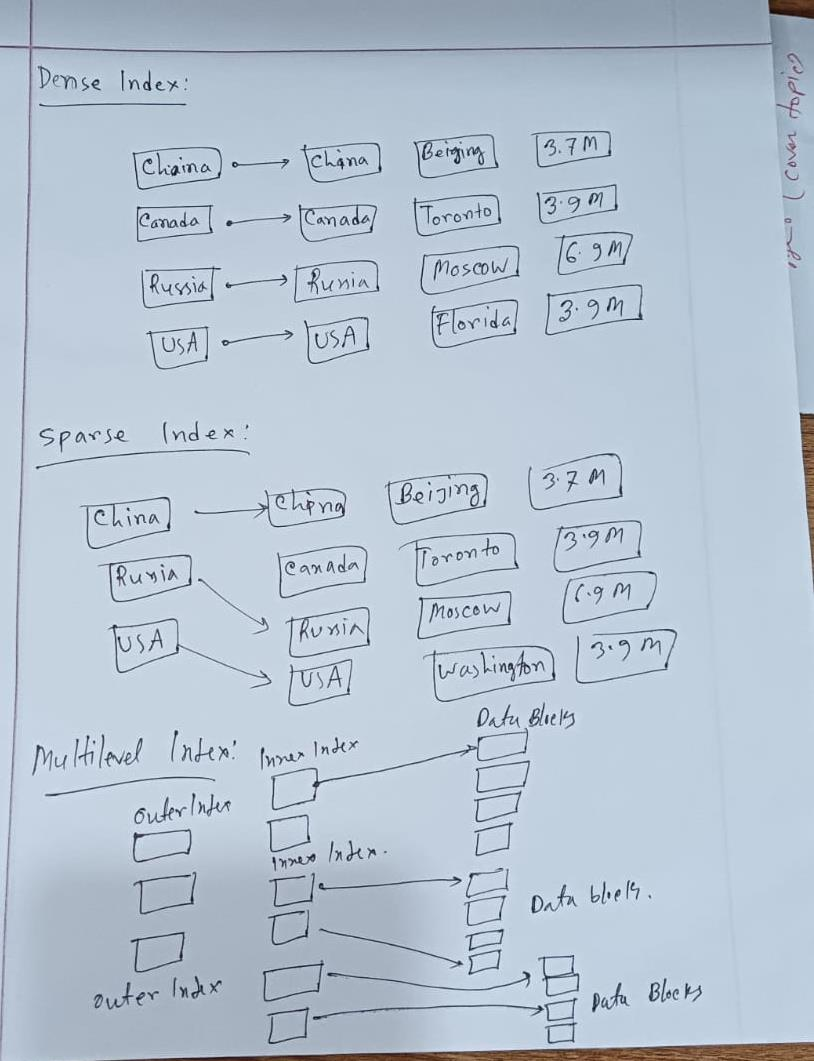 Dense Index:
Chaina China Beiging 3.7M
Canada Canada Toronto 3.9M
Russia Russia Moscow 6.9M
USA USA Florida 3.9M
Sparse Index:
China China Beijing 3.7M
Russia Canada Toronto 3.9M
USA Russia Moscow 6.9M
USA Washington 3.9M
Data Blocks
Multilevel Index: Inner Index
Outer Index
Inner Index.
Data blocks.
Outer Index
Data Blocks
(cover topic)